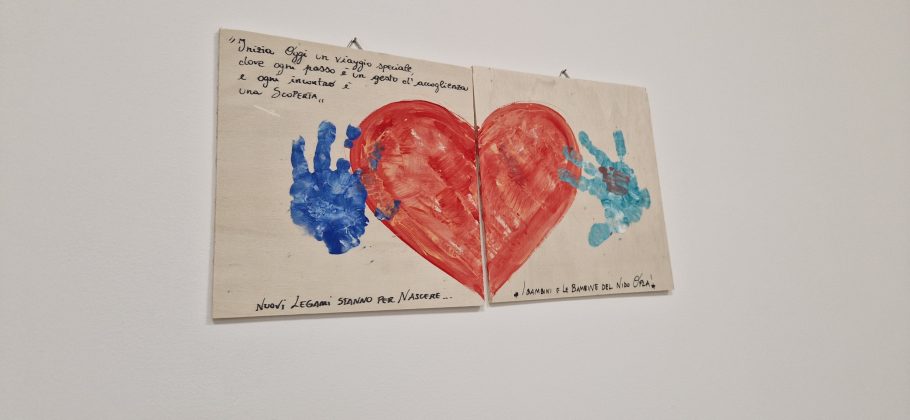 "Inizia Oggi un viaggio speciale,
dove ogni passo è un gesto d'accoglienza
e ogni incontro è
una SCOPERTA"
NUOVI LEGAMI STANNO PER NASCERE...
I BAMBINI E LE BAMBINE DEL NIDO OPLÀ!